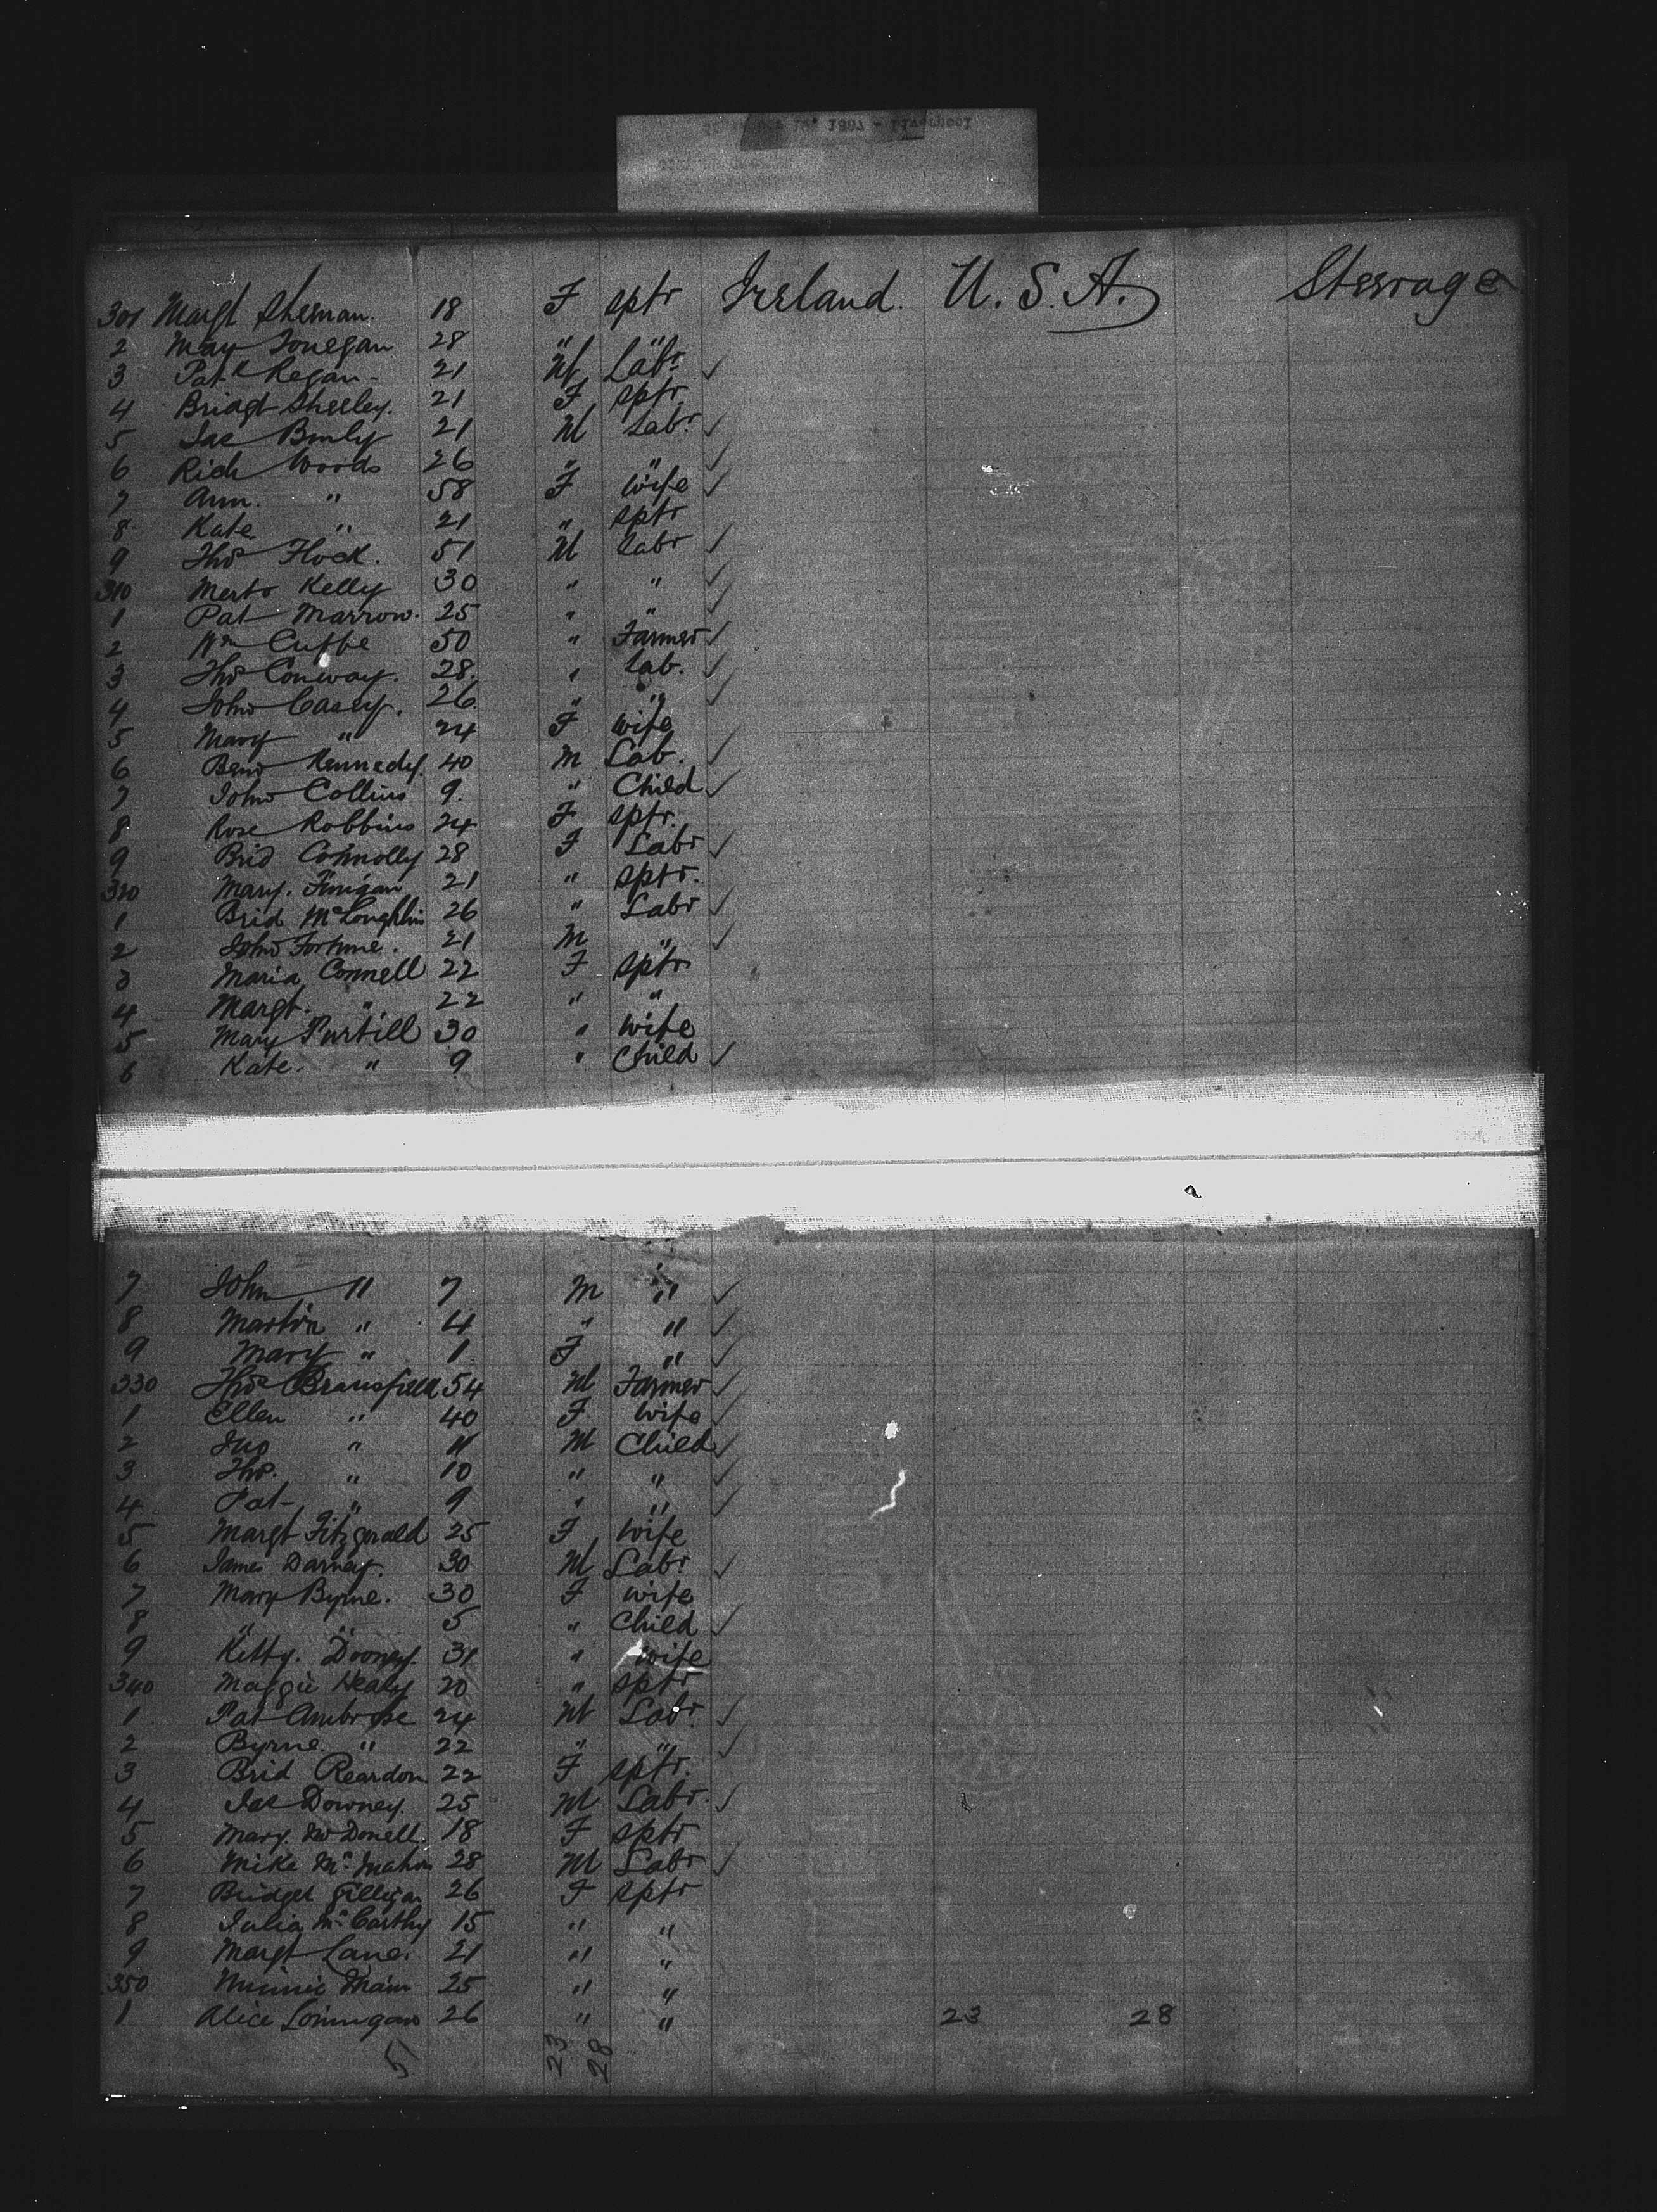 301 Margt Sheman. 18 F sptr Ireland. U.S.A. Steerage
2 May Donegan 28 " "
3 Patk Regan - 21 M Labr ✓
4 Bridgt Sheeley. 21 F sptr
5 Jas 21 M Labr ✓
6 Rich Woods 26 " " ✓
7 Ann. " 58 F wife ✓
8 Kate " 21 " sptr
9 Thos Flock. 51 M Labr ✓
310 Kelly 30 " " ✓
1 Pat Marrow. 25 " " ✓
2 Wm Cuffe 50 " Farmer ✓
3 Thos Conway. 28. " Lab. ✓
4 John Casey. 26. " " ✓
5 Mary " 24 F wife
6 Kennedy. 40 M Lab. ✓
7 John Collins 9. " Child ✓
8 Rose Robbins 24 F sptr.
9 Brid Connolly 28 F Labr ✓
320 Mary. Finigan 21 " sptr.
1 Brid McLoughlin 26 " Labr ✓
2 John Fortune. 21 M " ✓
3 Maria Connell 22 F sptr
4 Margt. " 22 " "
5 Mary Purtill 30 " wife
6 Kate. " 9 " Child ✓
7 John " 7 M " ✓
8 Martin " 4 " " ✓
9 Mary " 1 F " ✓
330 Thos Bransfield 54 M Farmer ✓
1 Ellen " 40 F wife ✓
2 Jno " 11 M Child ✓
3 Thos. " 10 " " ✓
4 Pat " 9 " " ✓
5 Margt Fitzgerald 25 F wife
6 James Darney. 30 M Labr ✓
7 Mary Byrne. 30 F wife
8 " " 5 " Child ✓
9 Kitty. Dooney. 31 " wife
340 Maggie Healy 20 " sptr
1 Pat Ambrose 24 M Labr. ✓
2 Byrne " 22 " " ✓
3 Brid Reardon 22 F sptr.
4 Jas Downey. 25 M Labr. ✓
5 Mary. McDonell. 18 F sptr
6 Mike McMahon 28 M Labr ✓
7 Bridget Gilligan 26 F sptr
8 Julia McCarthy 15 " "
9 Margt Lane. 21 " "
350 Minnie Main 25 " "
1 Alice 26 " " 23 28
51 23 28